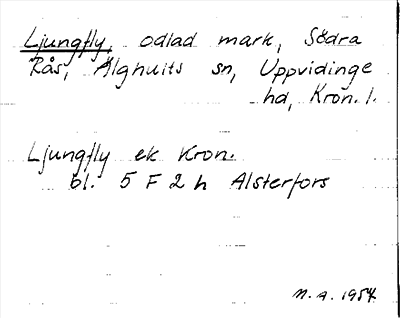 Ljungfly, odlad mark, Södra
Rås, Älghults sn, Uppvidinge
hd, Kron. l.
Ljungfly ek Kron.
bl. 5 F 2 h Alsterfors
N. A. 1954